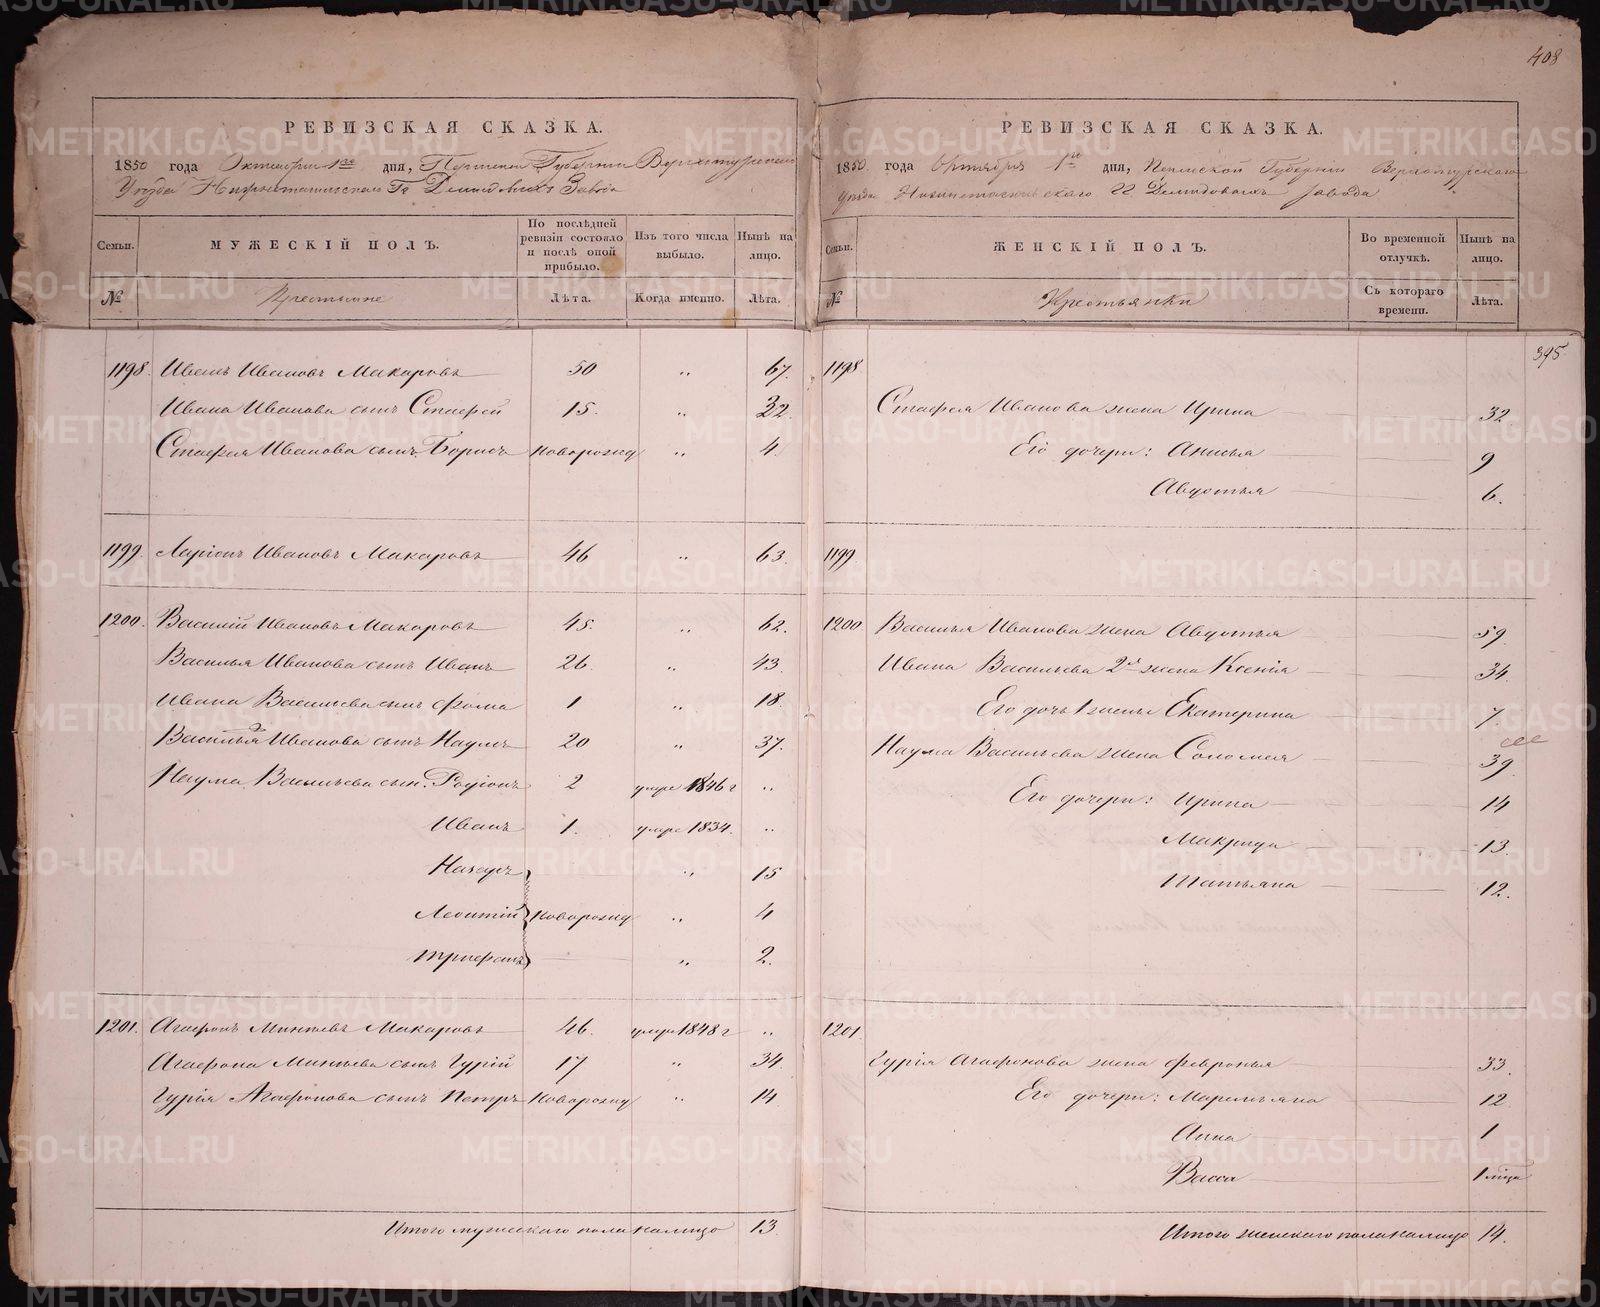 408
РЕВИЗСКАЯ СКАЗКА.
1850 года Октября 1го дня, Пермской Губернии Верхотурскаго
Уезда Нижнетагильскаго Гг Демидовыхъ Завода
Семьи. МУЖЕСКІЙ ПОЛЪ. По послѣдней ревизіи состояло и послѣ оной прибыло. Изъ того числа выбыло. Нынѣ на лицо.
№ Крестьяне Лѣта. Когда именно. Лѣта.
1198. Иванъ Ивановъ Макаровъ 50 „ 67.
Ивана Иванова сынъ Стафей 15. „ 32
Стафея Иванова сынъ Борисъ новорожд „ 4
1199. Ларіонъ Ивановъ Макаровъ 46 „ 63.
1200. Василій Ивановъ Макаровъ 45. „ 62.
Василья Иванова сынъ Иванъ 26. „ 43.
Ивана Васильева сынъ Фома 1 „ 18.
Василья Иванова сынъ Наумъ 20 „ 37.
Наума Васильева сын. Родіонъ 2 умре 1846 г „
Иванъ 1. умре 1834. „
„ 15
Леонтій новорожд „ 4
Трифонъ „ 2.
1201. Агафонъ Минѣевъ Макаровъ 46. умре 1848 г „
Агафона Минѣева сынъ Гурій 17 „ 34
Гурія Агафонова сынъ Петръ новорожд „ 14
Итого мужескаго пола налицо 13
РЕВИЗСКАЯ СКАЗКА.
1850 года Октября 1го дня, Пермской Губерніи Верхотурскаго
Уѣзда Нижнетагильскаго ГГ Демидовыхъ завода
Семьи. ЖЕНСКІЙ ПОЛЪ. Во временной отлучкѣ. Нынѣ на лицо.
№ Крестьянки Съ котораго времени. Лѣта.
395
1198
Стафея Иванова жена Ирина 32
Его дочери: Анисья 9
Авдотья 6.
1199.
1200 Василья Иванова жена Авдотья 59
Ивана Васильева 2я жена Ксенія 34
Его дочь 1 жены Екатерина 7.
Наума Васильева жена Соломея 39
Его дочери: Ирина 14
Макрида 13.
Татьяна 12.
1201
Гурія Агафонова жена Февронья 33.
Его дочери: Маремьяна 12
Анна 1
Васса 1 мѣца
Итого женскаго пола налицо 14.
METRIKI.GASO-URAL.RU